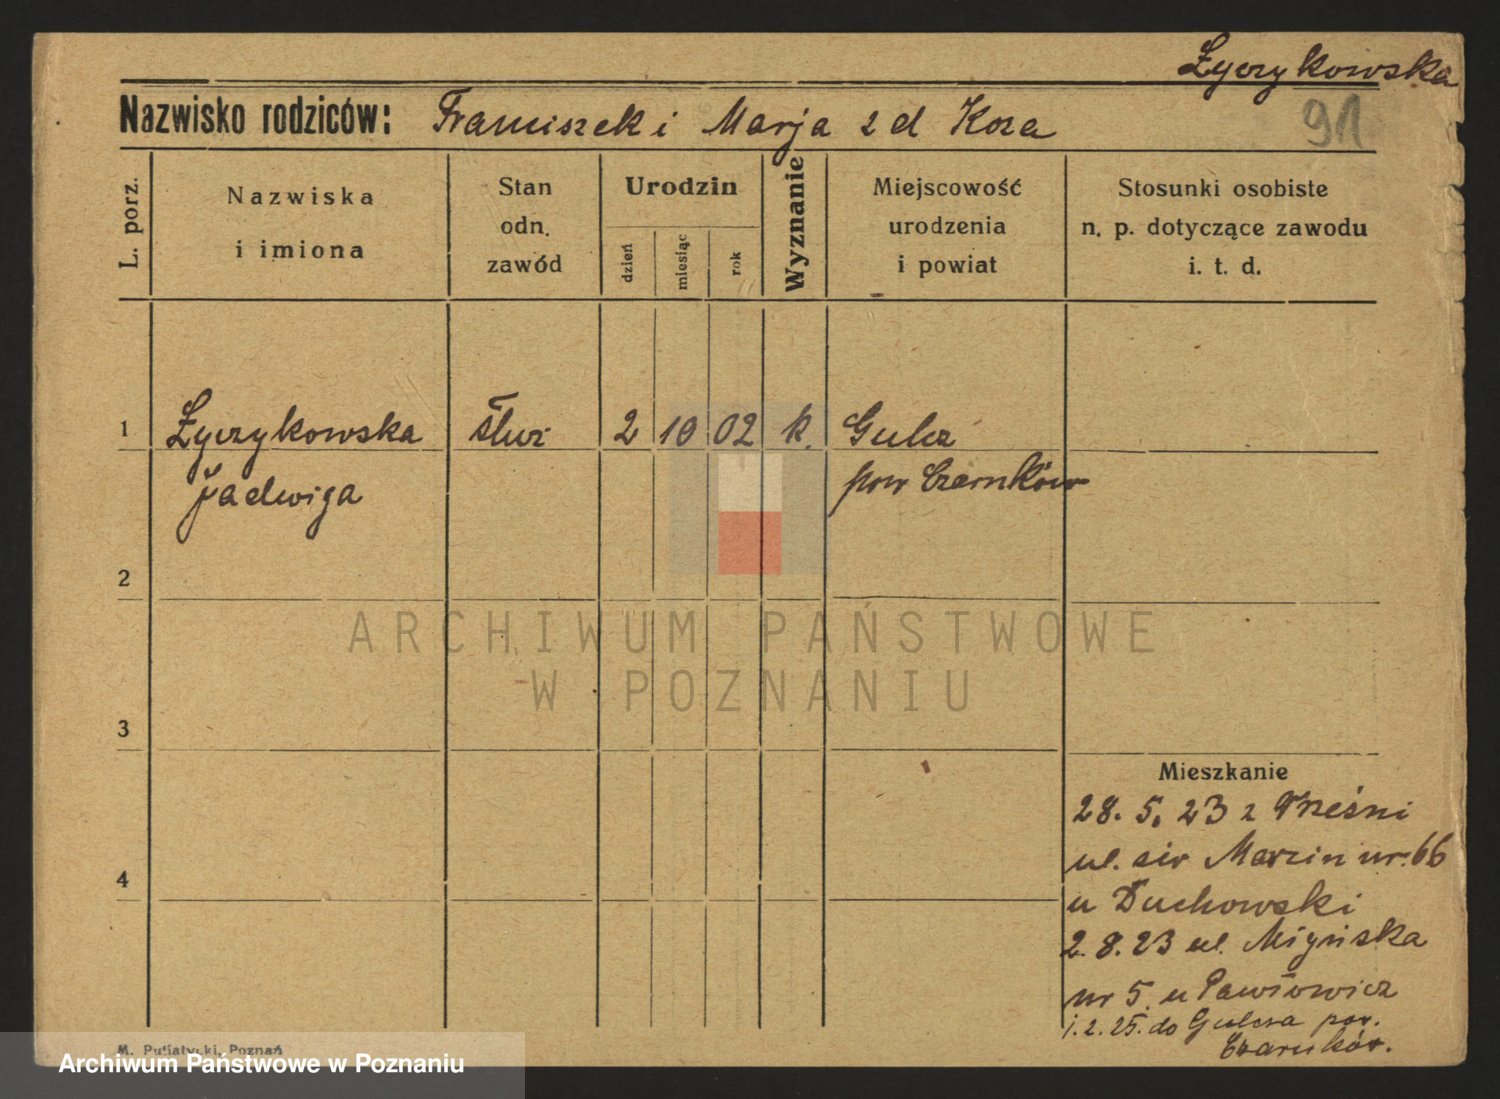 Życzykowska
Nazwisko rodziców: Franciszek i Marja z d Koza
91
L. porz.
Nazwiska
i imiona
Stan
odn.
zawód
Urodzin
dzień
miesiąc
rok
Wyznanie
Miejscowość
urodzenia
i powiat
Stosunki osobiste
n. p. dotyczące zawodu
i. t. d.
1 Życzykowska służ 2 10 02 k. Gulcz
Jadwiga pow Czarnków
2
ARCHIWUM PAŃSTWOWE
W POZNANIU
3
Mieszkanie
28. 5. 23 z Wześni
ul. św Marcin nr. 66
4
u Duchowski
2. 8. 23 ul.
nr 5. u Pawłowicz
1. 2. 25. do Gulcza pow.
Czarnków.
M. Putiatycki, Poznań
Archiwum Państwowe w Poznaniu